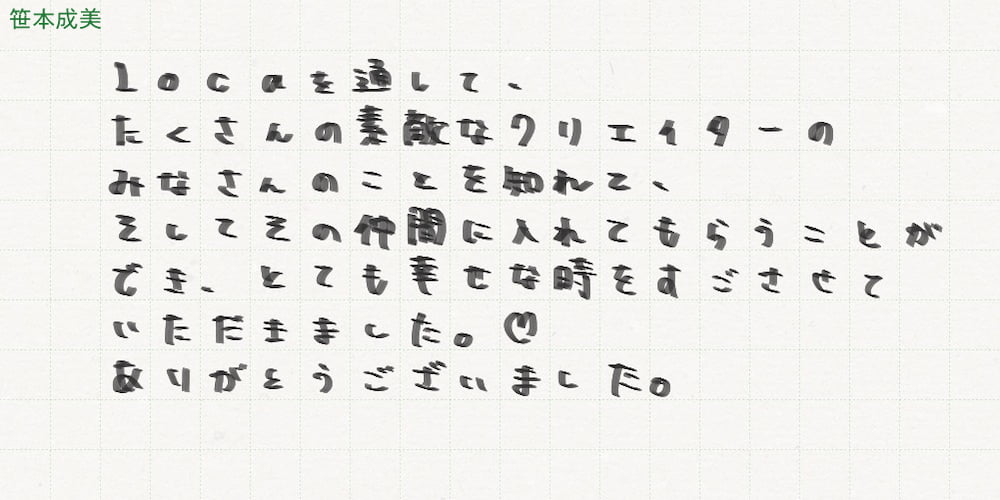 笹本成美
locaを通して、
たくさんの素敵なクリエイターの
みなさんのことを知れて、
そしてその仲間に入れてもらうことが
でき、とても幸せな時をすごさせて
いただきました。♡
ありがとうございました。